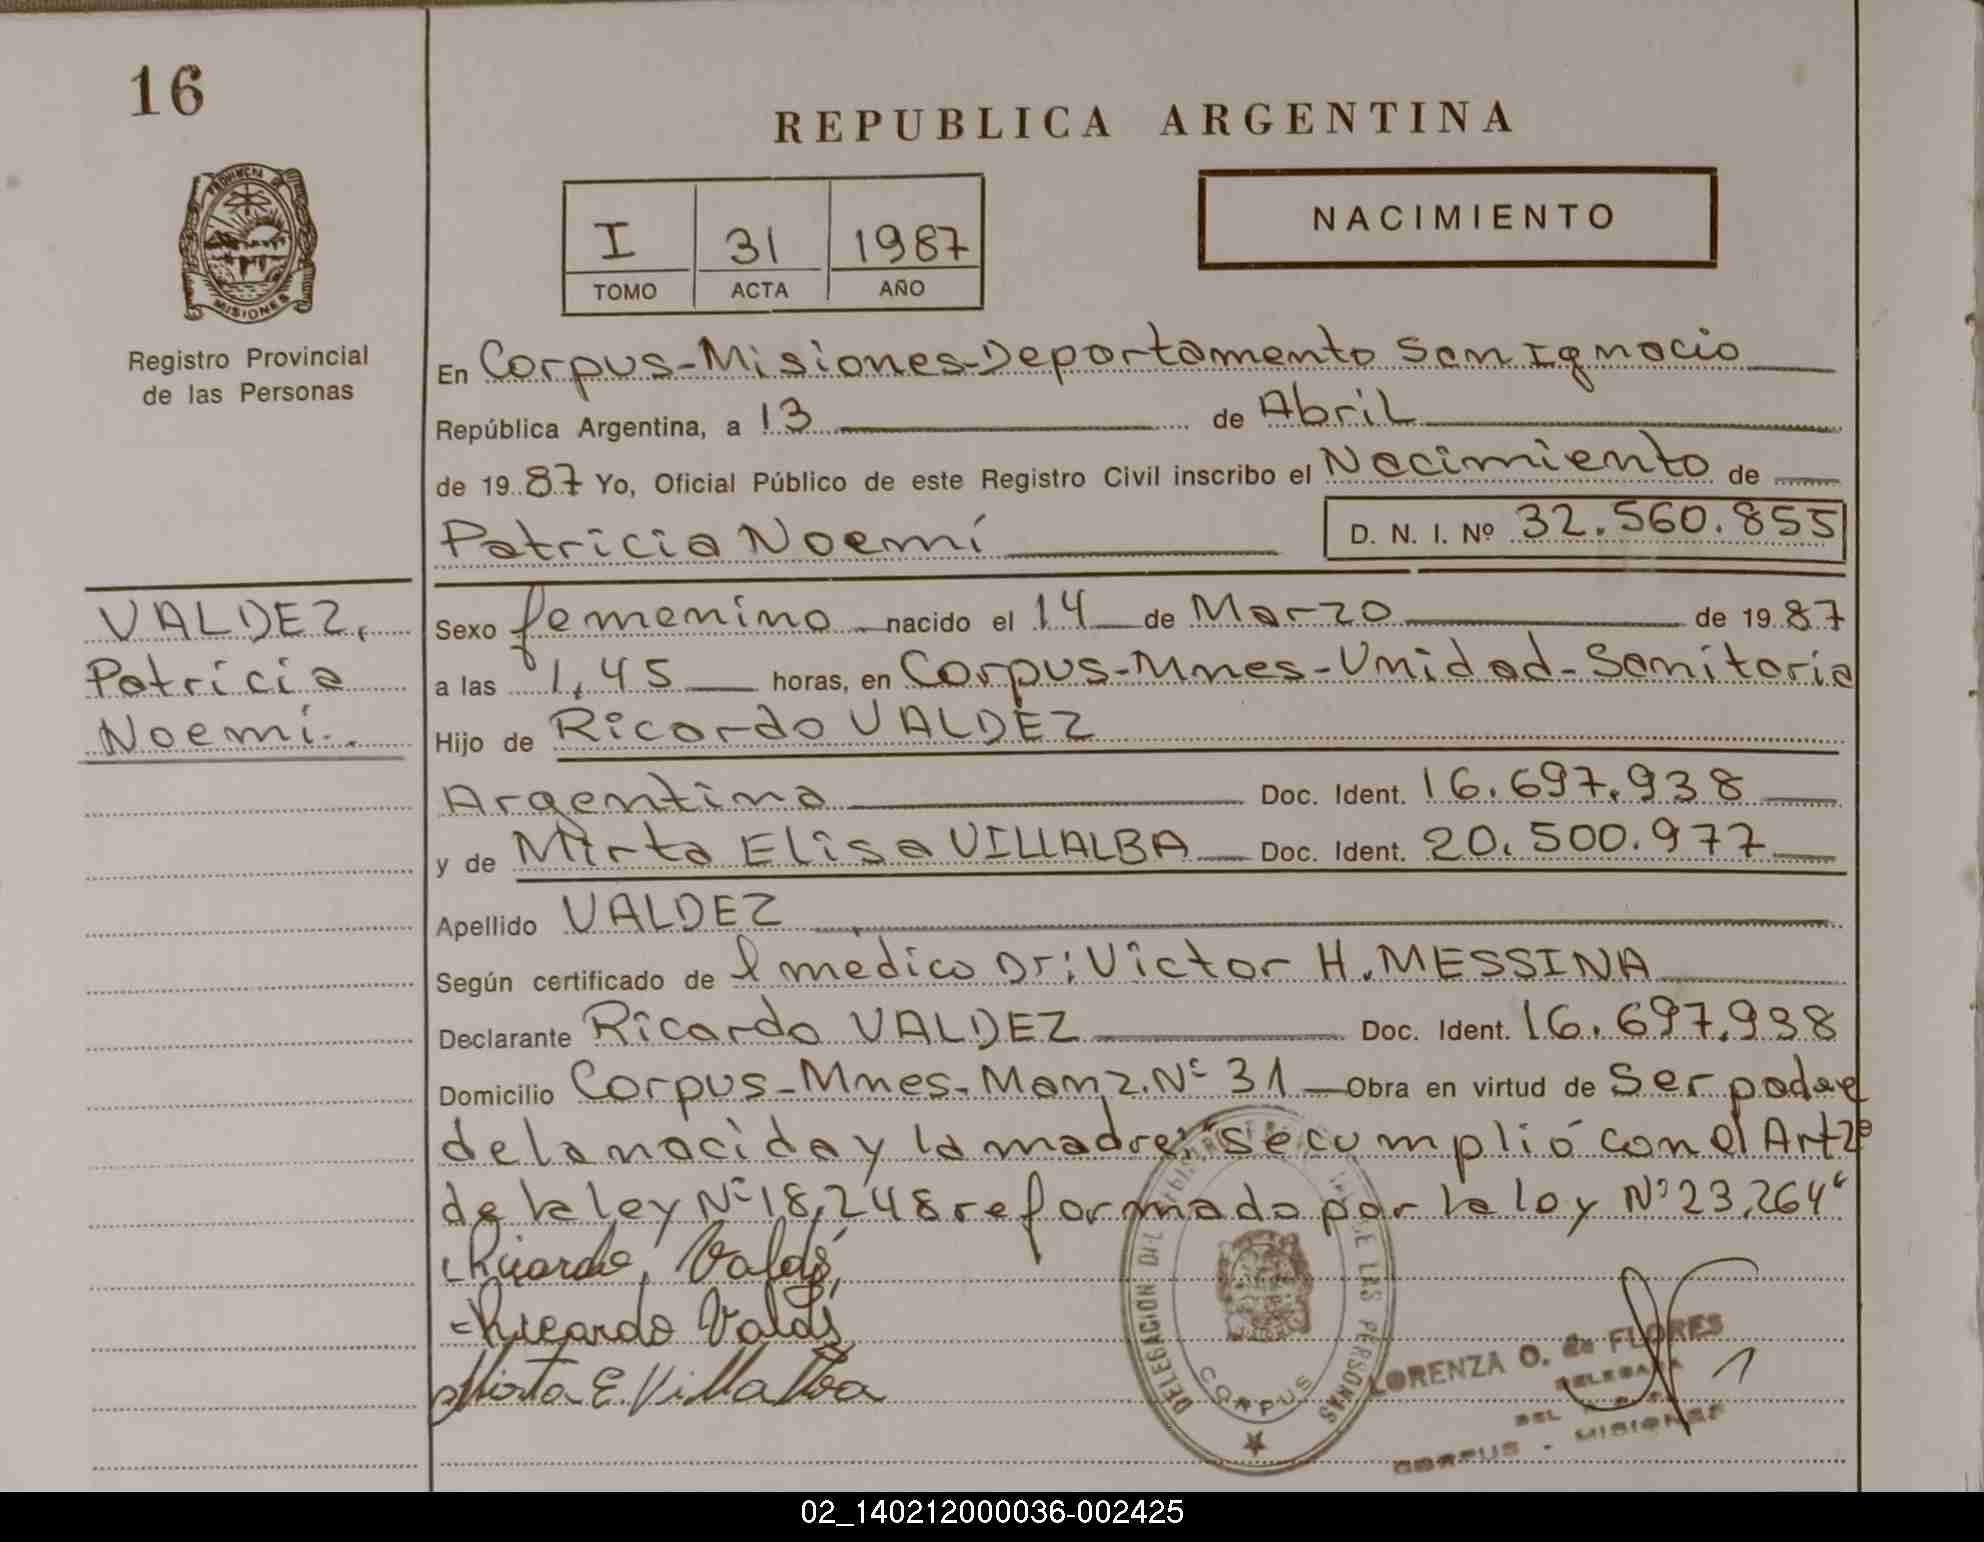 16
REPUBLICA ARGENTINA
PROVINCIA DE
MISIONES
Registro Provincial
de las Personas
I 31 1987
TOMO ACTA AÑO
NACIMIENTO
En Corpus-Misiones-Departamento San Ignacio
República Argentina, a 13 de Abril
de 1987 Yo, Oficial Público de este Registro Civil inscribo el Nacimiento de
Patricia Noemí
D. N. I. Nº 32.560.855
VALDEZ,
Patricia
Noemí.
Sexo femenino nacido el 14 de Marzo de 1987
a las 1,45 horas, en Corpus-Mnes-Unidad-Sanitaria
Hijo de Ricardo VALDEZ
Argentina Doc. Ident. 16.697.938
y de Mirta Elisa VILLALBA Doc. Ident. 20.500.977
Apellido VALDEZ
Según certificado de l medico Dr: Victor H. MESSINA
Declarante Ricardo VALDEZ Doc. Ident. 16.697.938
Domicilio Corpus-Mnes-Manz. Nº 31 Obra en virtud de Ser padre
de la nacida y la madre "se cumplió con el Art 2º
de la ley Nº 18,248 reformado por la ley Nº 23,264"
Ricardo Valdé
Ricardo Valdés
Mirta E. Villalba
DELEGACION DEL DE LAS PERSONAS
CORPUS
LORENZA O. de FLORES
DELEGADA
DEL
CORPUS - MISIONES
02_140212000036-002425